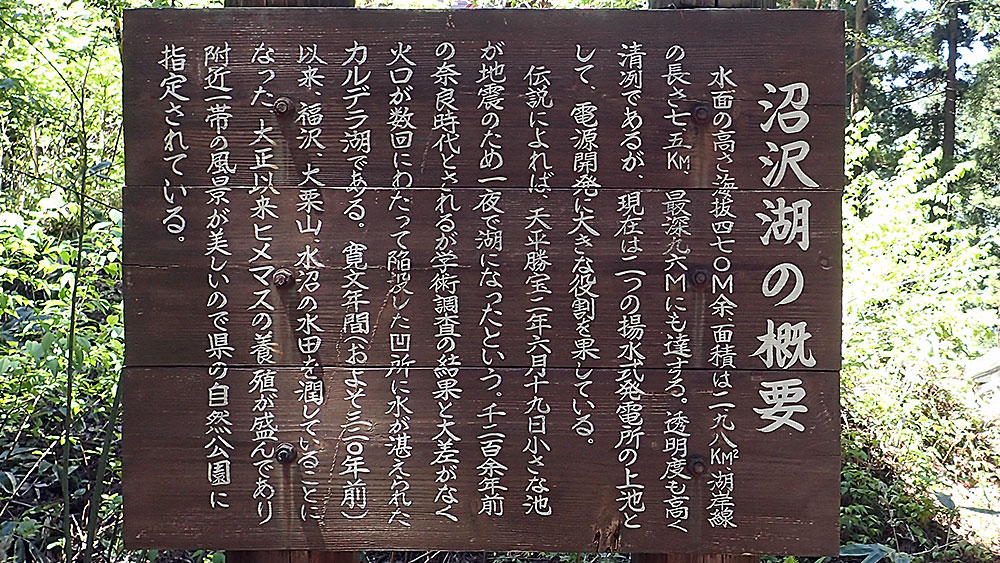 沼沢湖の概要
水面の高さ海抜四七〇M余、面積は二九八Km²湖岸線
の長さ七五Km、最深九六Mにも達する。透明度も高く
清冽であるが、現在は二つの揚水式発電所の上池と
して、電源開発に大きな役割を果している。
伝説によれば、天平勝宝二年六月十九日小さな池
が地震のため一夜で湖になったという。千二百余年前
の奈良時代とされるが学術調査の結果と大差がなく
火口が数回にわたって陥没した凹所に水が湛えられた
カルデラ湖である。寛文年間(およそ三二〇年前)
以来、福沢、大栗山、水沼の水田を潤していることに
なった、大正以来ヒメマスの養殖が盛んであり
附近一帯の風景が美しいので県の自然公園に
指定されている。